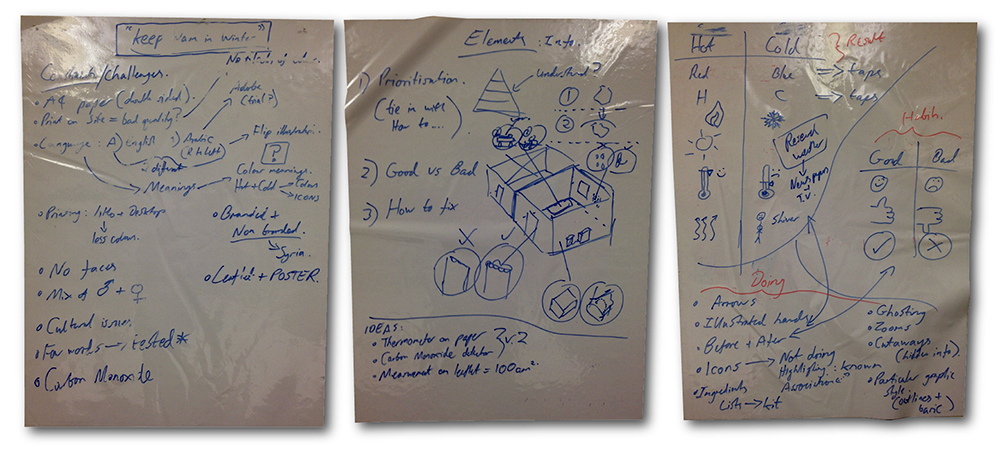 "Keep warm in winter"
Constraints/Challenges.
• A4 paper (double sided).
• Print on Site = bad quality?
Adobe
• Language: A) English
Arabic
(R to left)
Flip illustration.
different
Meanings
?
Colour meanings.
Hot + Cold → Colours
Icons
• Printing: litho + Desktop
less colour.
• Branded +
Non branded.
Syria.
• No faces
• Leaflet + POSTER.
• Mix of ♂ + ♀
• Cultural issues
• Few words → tested *
• Carbon Monoxide
Elements: Info.
1) Prioritisation.
Understand?
(tie in with
How to ....
1
2
2) Good vs Bad
3) How to fix
X ✓
IDEAS:
• Thermometer on paper
• Carbon Monoxide detector
v.2
• Measurement on leaflet = 100cm².
Hot Cold
Result
Red Blue => taps
H C => taps
Habits.
Good Bad
Newspapers
T.V.
Shiver
✓ X
Doing
• Arrows
• Illustrated hands
• Before + After
• Icons → Not doing
Highlighting: known
• Ingredients
Lists → kit
• Ghosting
• Zooms
• Cutaways
(hidden info).
• Particular graphic
style.
(outlines +
basic)